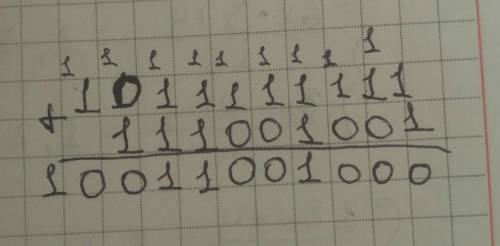 1 1 1 1 1 1 1 1 1
+ 1 0 1 1 1 1 1 1 1 1
1 1 1 0 0 1 0 0 1
1 0 0 1 1 0 0 1 0 0 0